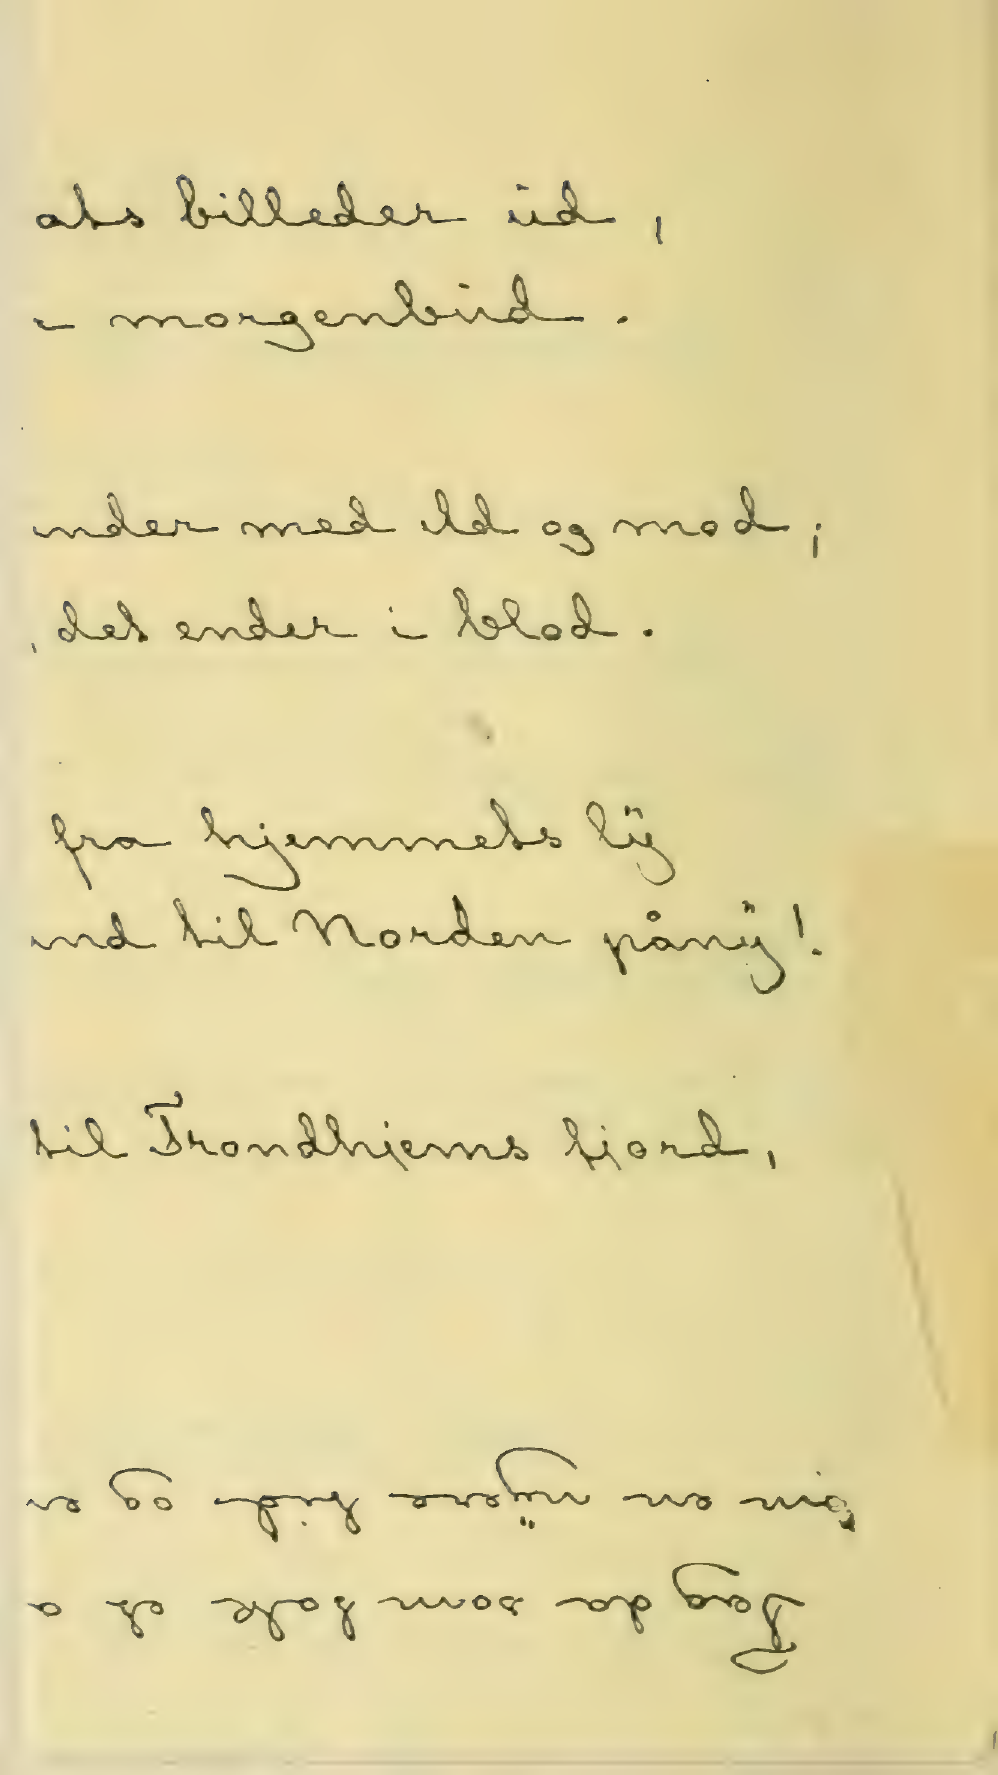 ats billeder ud,
r morgenbud.
inder med ild og mod;
, det ender i blod.
fra hjemmets ly
ind til Norden påny!.
til Trondhjems fjord,
Tag da som folk et a
din en nyere tid og en